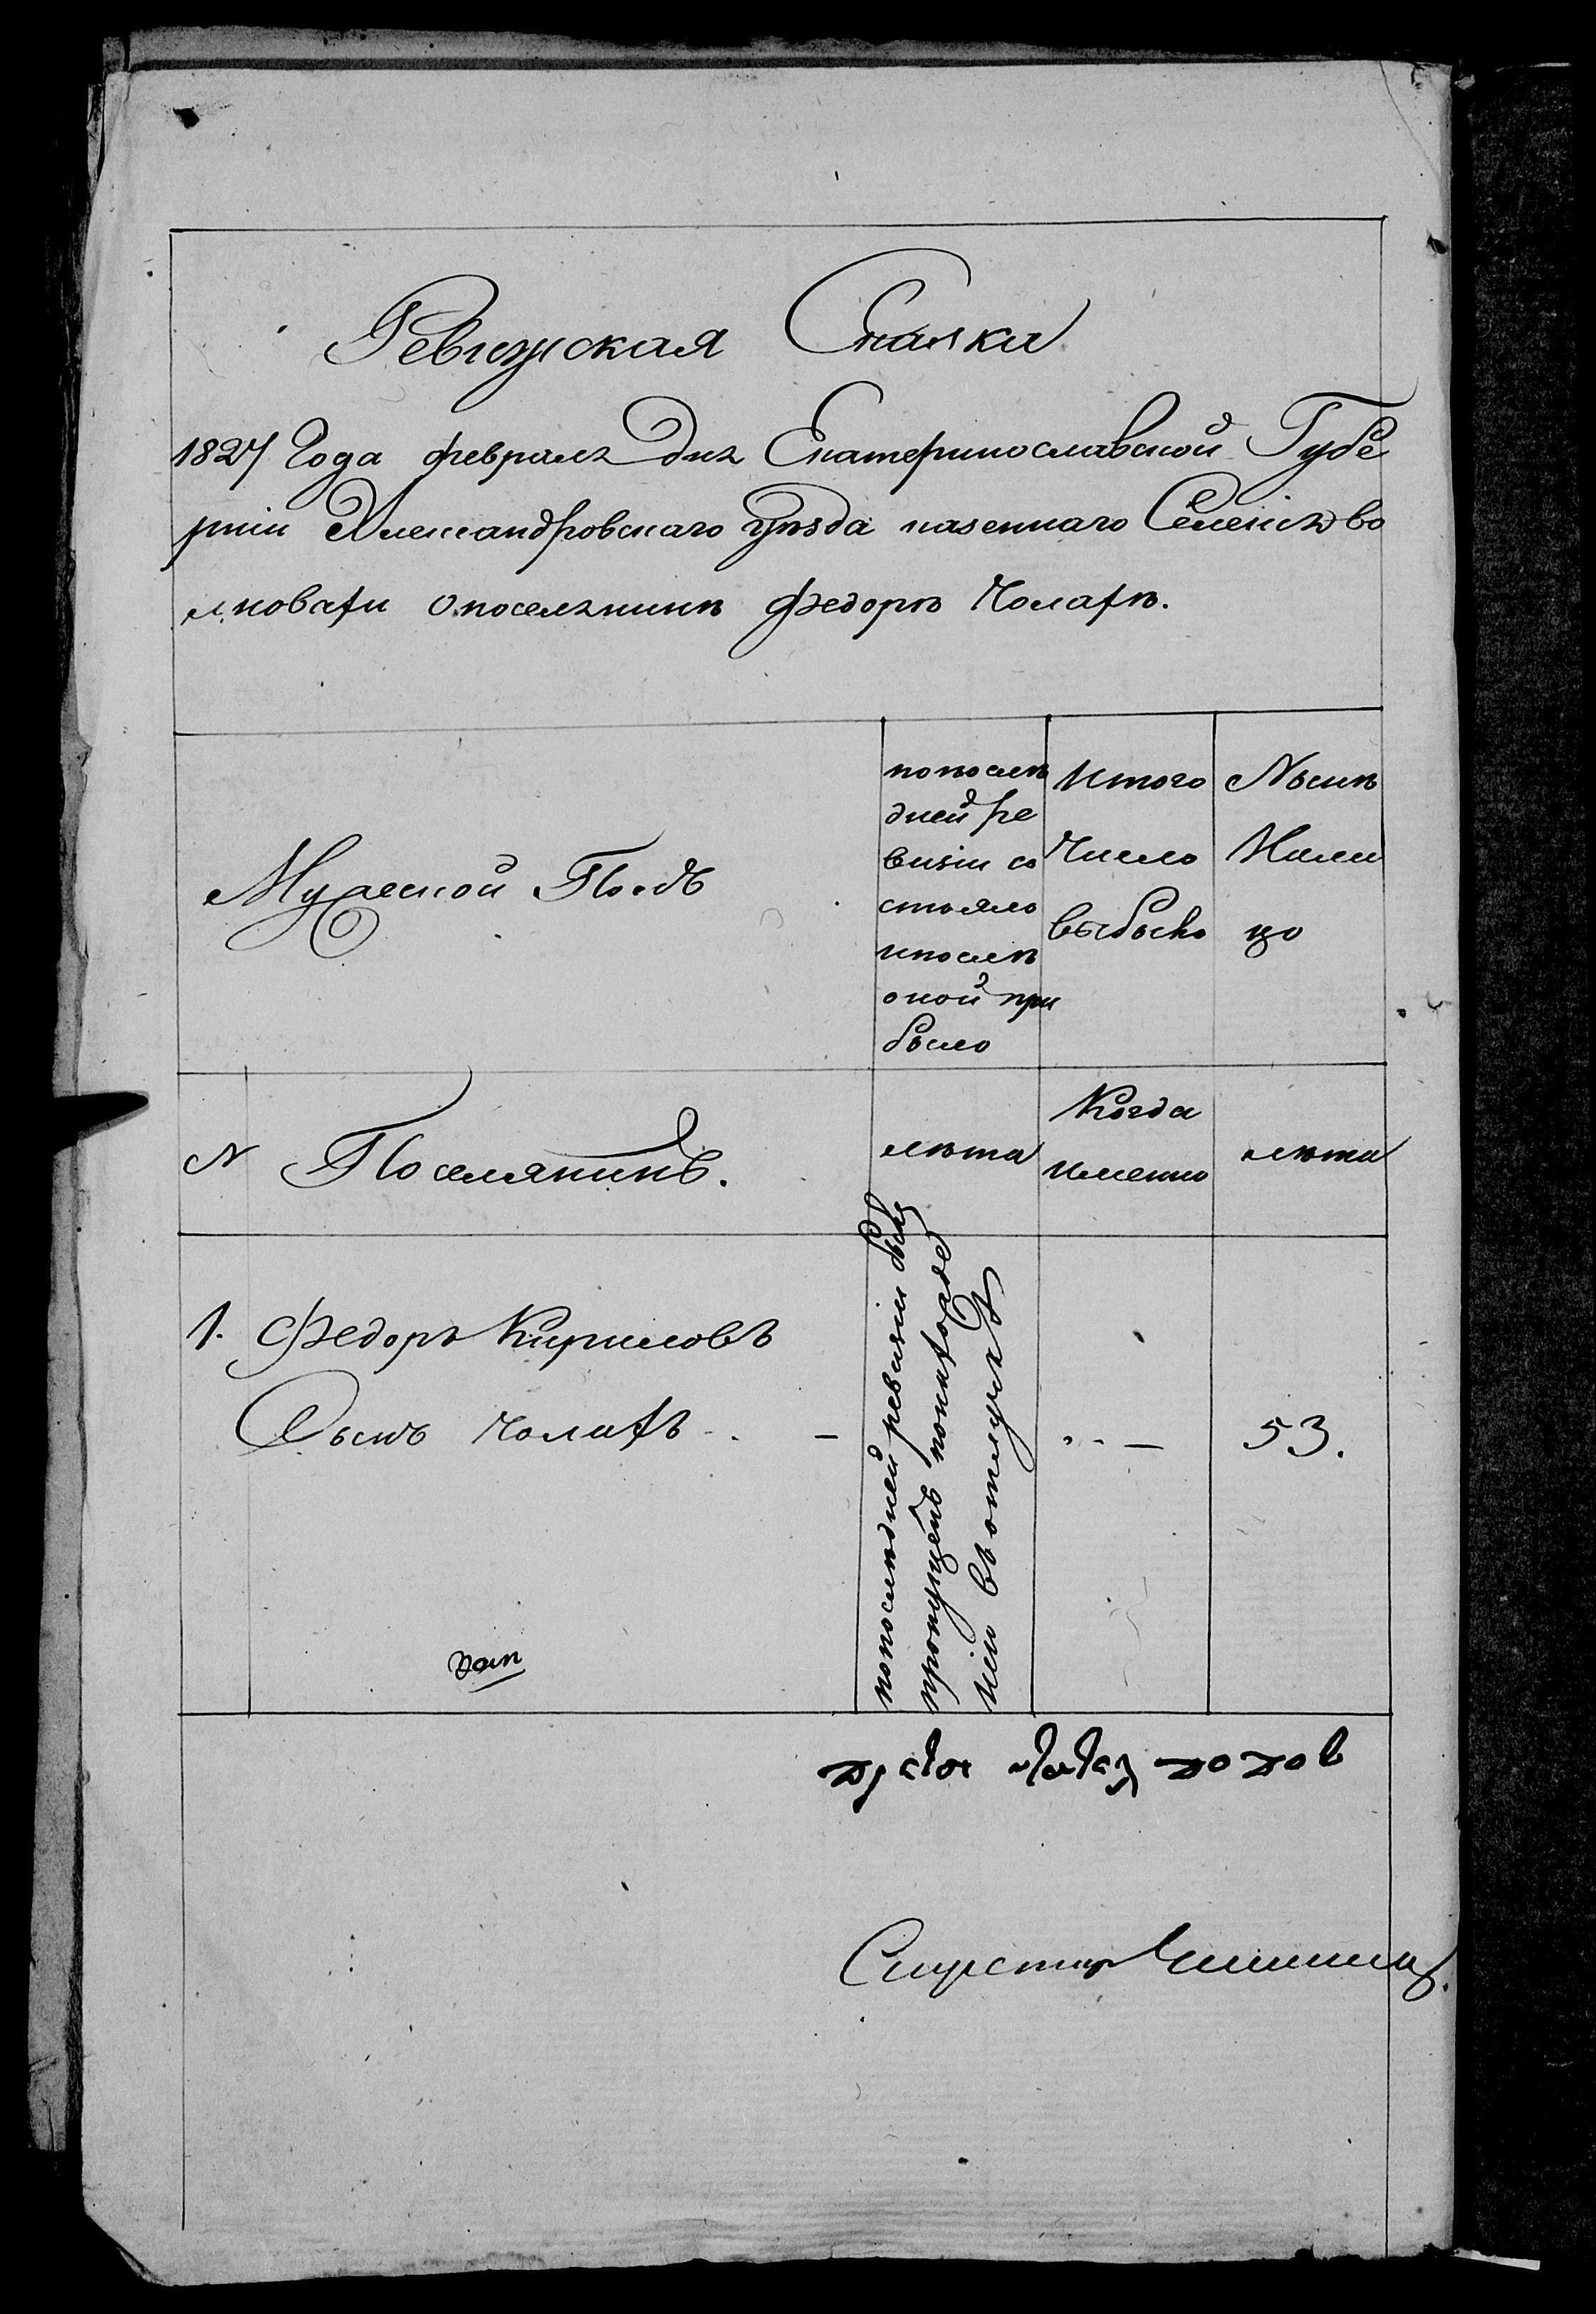 Ревижская Скаска
1827 Года февраля Дня Екатеринославской Губе
рніи Александровскаго уѣзда казеннаго Селенія во
лноватки опоселянинѣ Федорѣ Чолакѣ.
Мужеской Полъ
попослѣ
дней ре
визіи со
стояло
ипослѣ
оной при
было
Изтого
Число
выбыло
Нынѣ
Нали
цо
N Поселянинъ.
лѣта
Когда
именно
лѣта
1. Федоръ Кириловъ
Сынъ Чолакъ - . -
попослѣдней ревизіи былъ
пропущенъ
въ отлучкѣ
53.